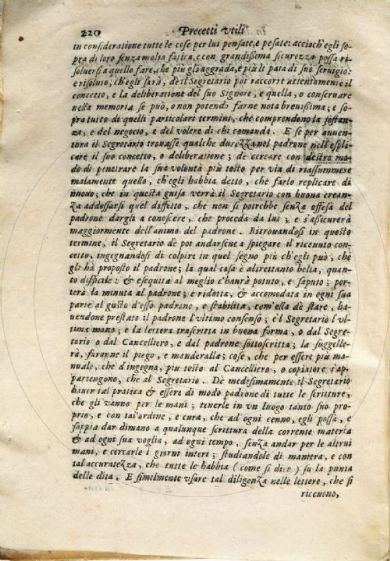 220 Precetti vtili
in consideratione tutte le cose per lui pensate, e pesate: accioch'egli so-
pra di loro senza molta fatica, e con grandissima sicurezza possa ri-
soluersi a quello fare, che più gli aggrada, e più li para di suo seruigio:
e risoluto, ch'egli sarà, de il Segretario poi raccorre attentamente il
concetto, e la deliberatione del suo Signore, e quella, o conseruare
nella memoria se può, o non potendo farne nota breuissima; e so-
pra tutto di quelli particolari termini, che comprendono la sostan-
za, e del negocio, e del volere di chi comanda. E se per auuen-
tura il Segretario trouasse qualche durezza nel padrone nell'espli-
care il suo concetto, o deliberatione; de cercare con destro mo-
do di penetrare la sua volontà più tosto per via di riassummere
malamente quello, ch'egli habbia detto, che farlo replicare di
nuouo; che in questa guisa verrà il Segretario con buona crean-
za addossarsi quel diffetto, che non si potrebbe senza offesa del
padrone dargli a conoscere, che proceda da lui; e s'assicurerà
maggiormente dell'animo del padrone. Ritrouandosi in questo
termine, il Segretario dè poi andarsene a spiegare il riceuuto con-
cetto, ingegnandosi di colpire in quel segno più ch'egli può, che
gli hà proposto il padrone; la qual cosa è altrettanto bella, quan-
to difficile: & esequita al meglio c'haurà potuto, e saputo; por-
terà la minuta al padrone; e ridotta, & accomodata in ogni sua
parte al gusto d'esso padrone, e stabilita, com'ella dè stare, ha-
uendone prestato il padrone l'vltimo consenso; e'l Segretario l'vl-
tima mano; e la lettera trascritta in buona forma, o dal Segre-
tario o dal Cancelliero, e dal padrone sottoscritta; la suggelle-
rà, faranne il piego, e manderalla; cose, che per essere più ma-
nuale, che d'ingegno, più tosto al Cancelliero, o copiatore s'ap-
partengono, che al Segretario. Dè medesimamente il Segretario
hauer tal pratica & essere di modo padrone di tutte le scritture,
che gli vanno per le mani; tenerle in vn luogo tanto suo pro-
prio, e con tal'ordine, e cura, che ad ogni cenno, egli possa, e
sappia dar dimano a qualunque scrittura della corrente materia
& ad ogni sua voglia, ad ogni tempo, senza andar per le altrui
mani, e cercarle i giorni interi; studiandole di maniera, e con
tal accuratezza, che tutte le habbia (come si dice) su la punta
delle dita. E similmente vsare tal diligenza nelle lettere, che si
riceuono,